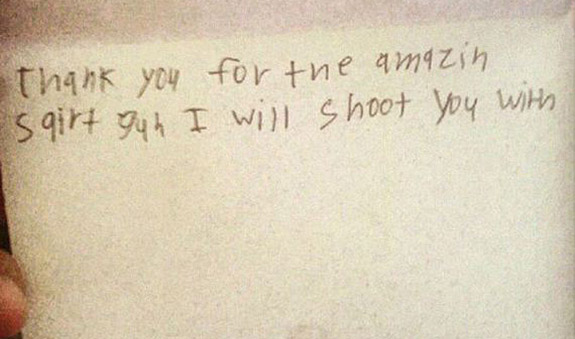 thank you for the amazin
sqirt guh I will shoot you with